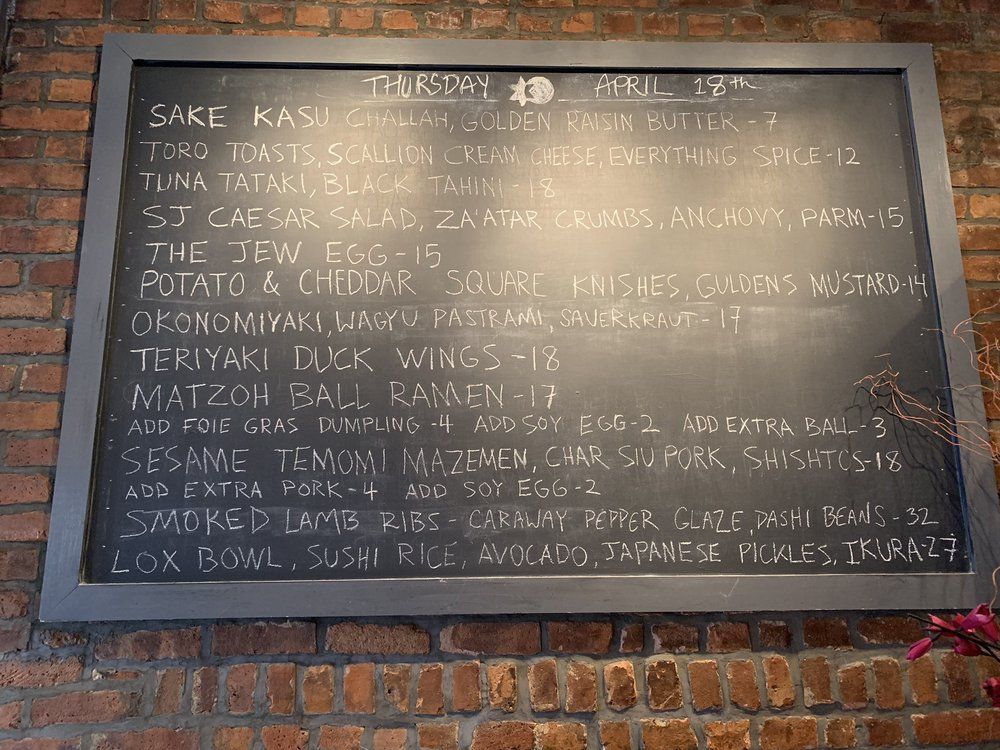 THURSDAY APRIL 18th
SAKE KASU CHALLAH, GOLDEN RAISIN BUTTER - 7
TORO TOASTS, SCALLION CREAM CHEESE, EVERYTHING SPICE - 12
TUNA TATAKI, BLACK TAHINI - 18
SJ CAESAR SALAD, ZA'ATAR CRUMBS, ANCHOVY, PARM - 15
THE JEW EGG - 15
POTATO & CHEDDAR SQUARE KNISHES, GULDENS MUSTARD - 14
OKONOMIYAKI, WAGYU PASTRAMI, SAUERKRAUT - 17
TERIYAKI DUCK WINGS - 18
MATZOH BALL RAMEN - 17
ADD FOIE GRAS DUMPLING - 4 ADD SOY EGG - 2 ADD EXTRA BALL - 3
SESAME TEMOMI MAZEMEN, CHAR SIU PORK, SHISHTOS - 18
ADD EXTRA PORK - 4 ADD SOY EGG - 2
SMOKED LAMB RIBS - CARAWAY PEPPER GLAZE, DASHI BEANS - 32
LOX BOWL, SUSHI RICE, AVOCADO, JAPANESE PICKLES, IKURA - 27